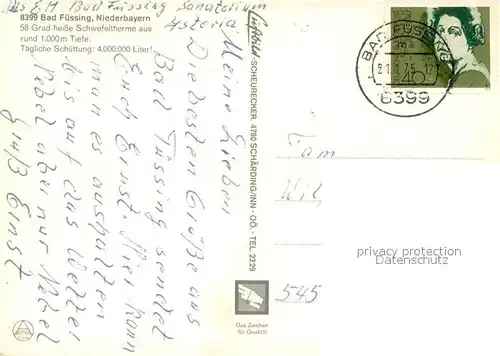 Abs E.H Bad Füssing Sanatorium
Astoria
8399 Bad Füssing, Niederbayern
58 Grad heiße Schwefeltherme aus
rund 1.000 m Tiefe.
Tägliche Schüttung: 4,000.000 Liter!
Meine Lieben
Die besten Grüße aus
Bad Füssing sendet
Euch Ernst. Hier kann
man es aushalten
bis auf das Wetter
Nebel aber nur Nebel
Gruß Ernst
Luftbild-SCHEURECKER, 4780 SCHÄRDING/INN - OÖ. - TEL. 2329
BAD FÜSSING
8399
40
Fam
545
Das Zeichen
für Qualität
privacy protection
watermark